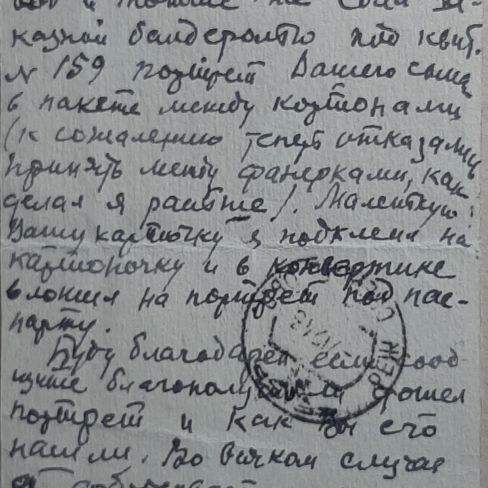 казной бандеролью под квит.
№ 159 портрет Вашего сына
в пакете между картонами
(к сожалению теперь отказались
принять между фанерками, как
делал я раньше). Маленькую
Вашу карточку я подклеил на
картоночку и в конвертике
вложил на портрет под пас-
парту.
Буду благодарен если сооб
щите благополучно ли дошел
портрет и как Вы его
нашли. Во всяком случае